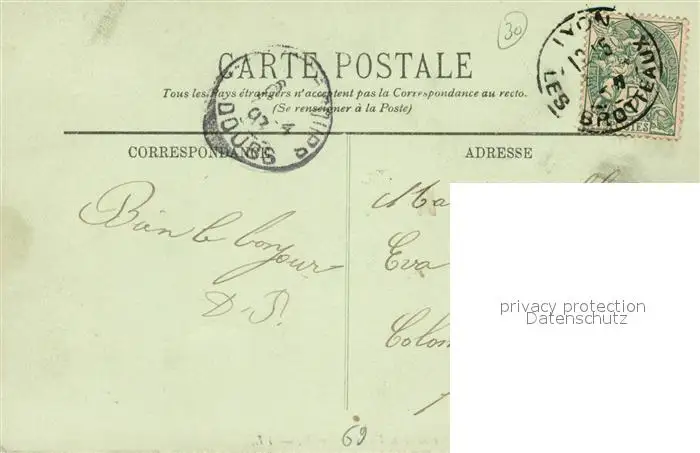 30
CARTE POSTALE
Tous les Pays étrangers n'acceptent pas la Correspondance au recto.
(Se renseigner à la Poste)
LYON
LES BROTTEAUX
DOUBS
CORRESPONDANCE
ADRESSE
Bien le bonjour
D.J.
Ma
Eva
Colom
privacy protection
Datenschutz
69